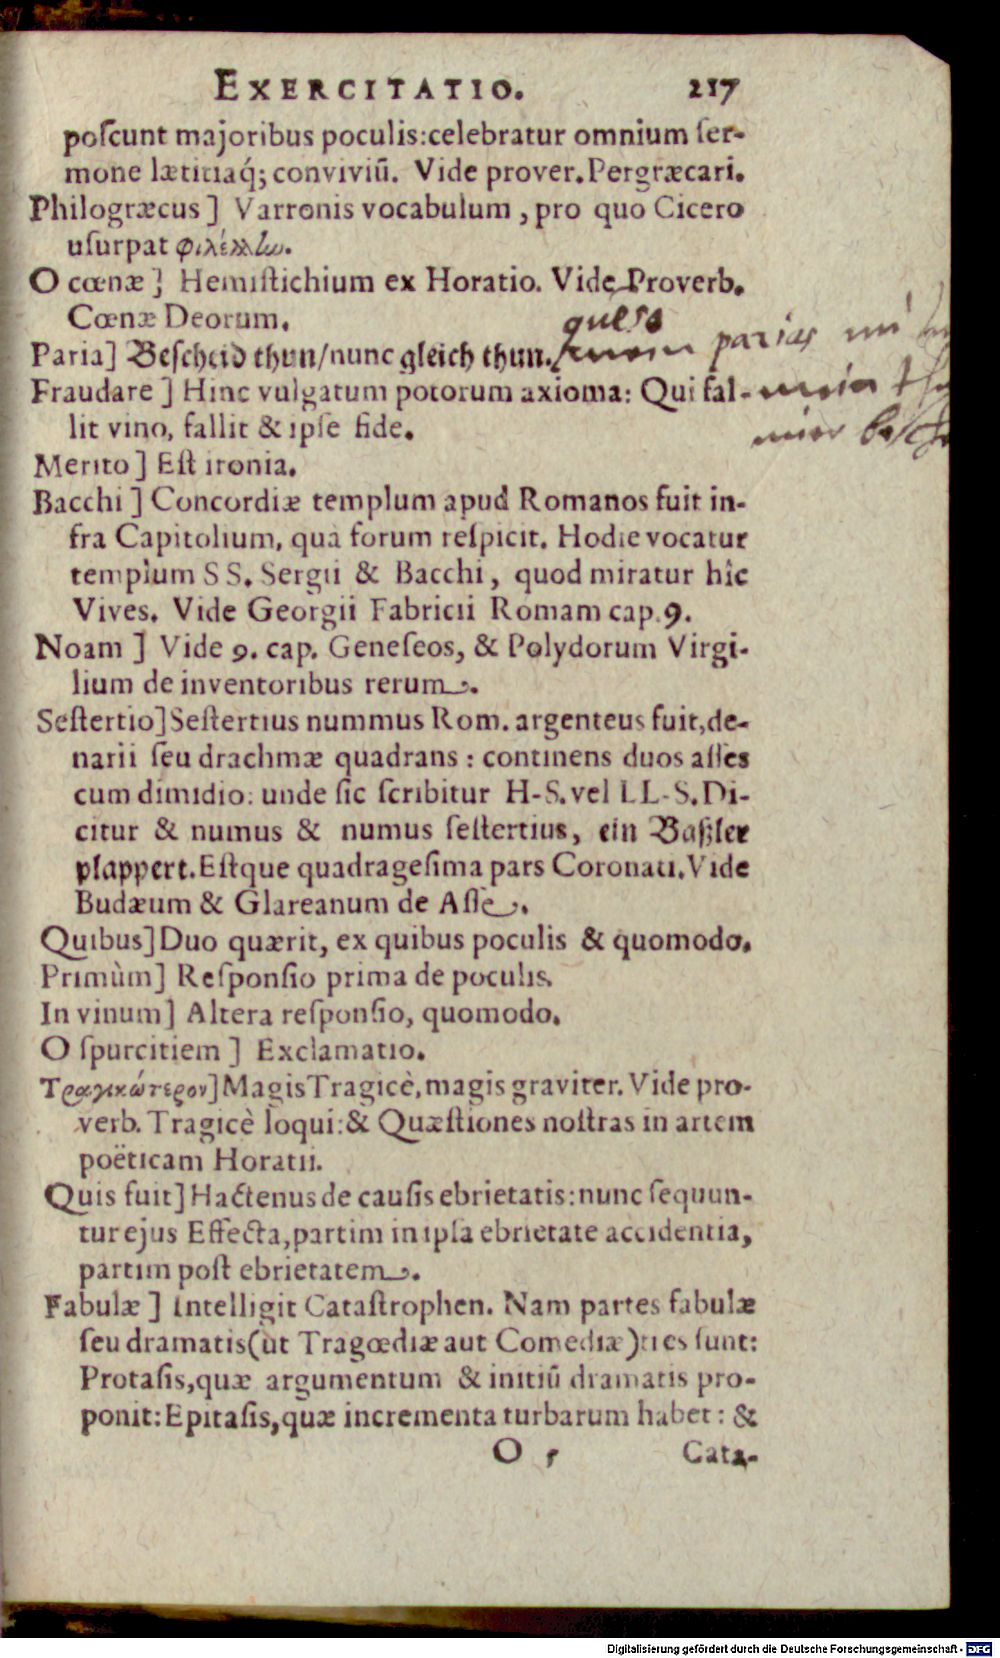 EXERCITATIO. 217
poſcunt majoribus poculis:celebratur omnium ſer-
mone lætitiaq́; conviviũ. Vide prover. Pergræcari.
Philogræcus] Varronis vocabulum, pro quo Cicero
uſurpat φιλέλλω.
O cœnæ] Hemiſtichium ex Horatio. Vide Proverb.
Cœnæ Deorum.
queſo
Paria] Beſcheid thun/nunc gleich thun. parias mi
Fraudare] Hinc vulgatum potorum axioma: Qui fal-
lit vino, fallit & ipſe fide.
Merito] Eſt ironia.
Bacchi] Concordiæ templum apud Romanos fuit in-
fra Capitolium, quà forum reſpicit. Hodie vocatur
templum SS. Sergii & Bacchi, quod miratur hîc
Vives. Vide Georgii Fabricii Romam cap. 9.
Noam] Vide 9. cap. Geneſeos, & Polydorum Virgi-
lium de inventoribus rerum.
Seſtertio] Seſtertius nummus Rom. argenteus fuit, de-
narii ſeu drachmæ quadrans: continens duos aſſes
cum dimidio: unde ſic ſcribitur H-S. vel LL-S. Di-
citur & numus & numus ſeſtertius, ein Baßler
plappert. Eſtque quadrageſima pars Coronati. Vide
Budæum & Glareanum de Aſſe.
Quibus] Duo quærit, ex quibus poculis & quomodo.
Primùm] Reſponſio prima de poculis.
In vinum] Altera reſponſio, quomodo.
O ſpurcitiem] Exclamatio.
Τραγικώτερον] Magis Tragicè, magis graviter. Vide pro-
verb. Tragicè loqui: & Quæſtiones noſtras in artem
poëticam Horatii.
Quis fuit] Hactenus de cauſis ebrietatis: nunc ſequun-
tur ejus Effecta, partim in ipſa ebrietate accidentia,
partim poſt ebrietatem.
Fabulæ] Intelligit Cataſtrophen. Nam partes fabulæ
ſeu dramatis (ut Tragœdiæ aut Comediæ) tres ſunt:
Protaſis, quæ argumentum & initiũ dramatis pro-
ponit: Epitaſis, quæ incrementa turbarum habet: &
O 5 Cata-
Digitalisierung gefördert durch die Deutsche Forschungsgemeinschaft - DFG